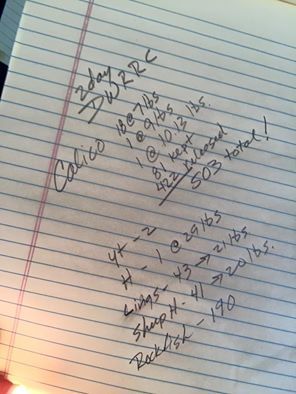 2 day
DWRRC
Calico 18 @ 7 lbs
1 @ 9 lbs
1 @ 10.13 lbs.
81 kept
422 released
503 total!
yt - 2
H - 1 @ 29 lbs
Lings - 43 → 21 lbs
Sheep H - 41 → 20 lbs.
Rockfish - 190